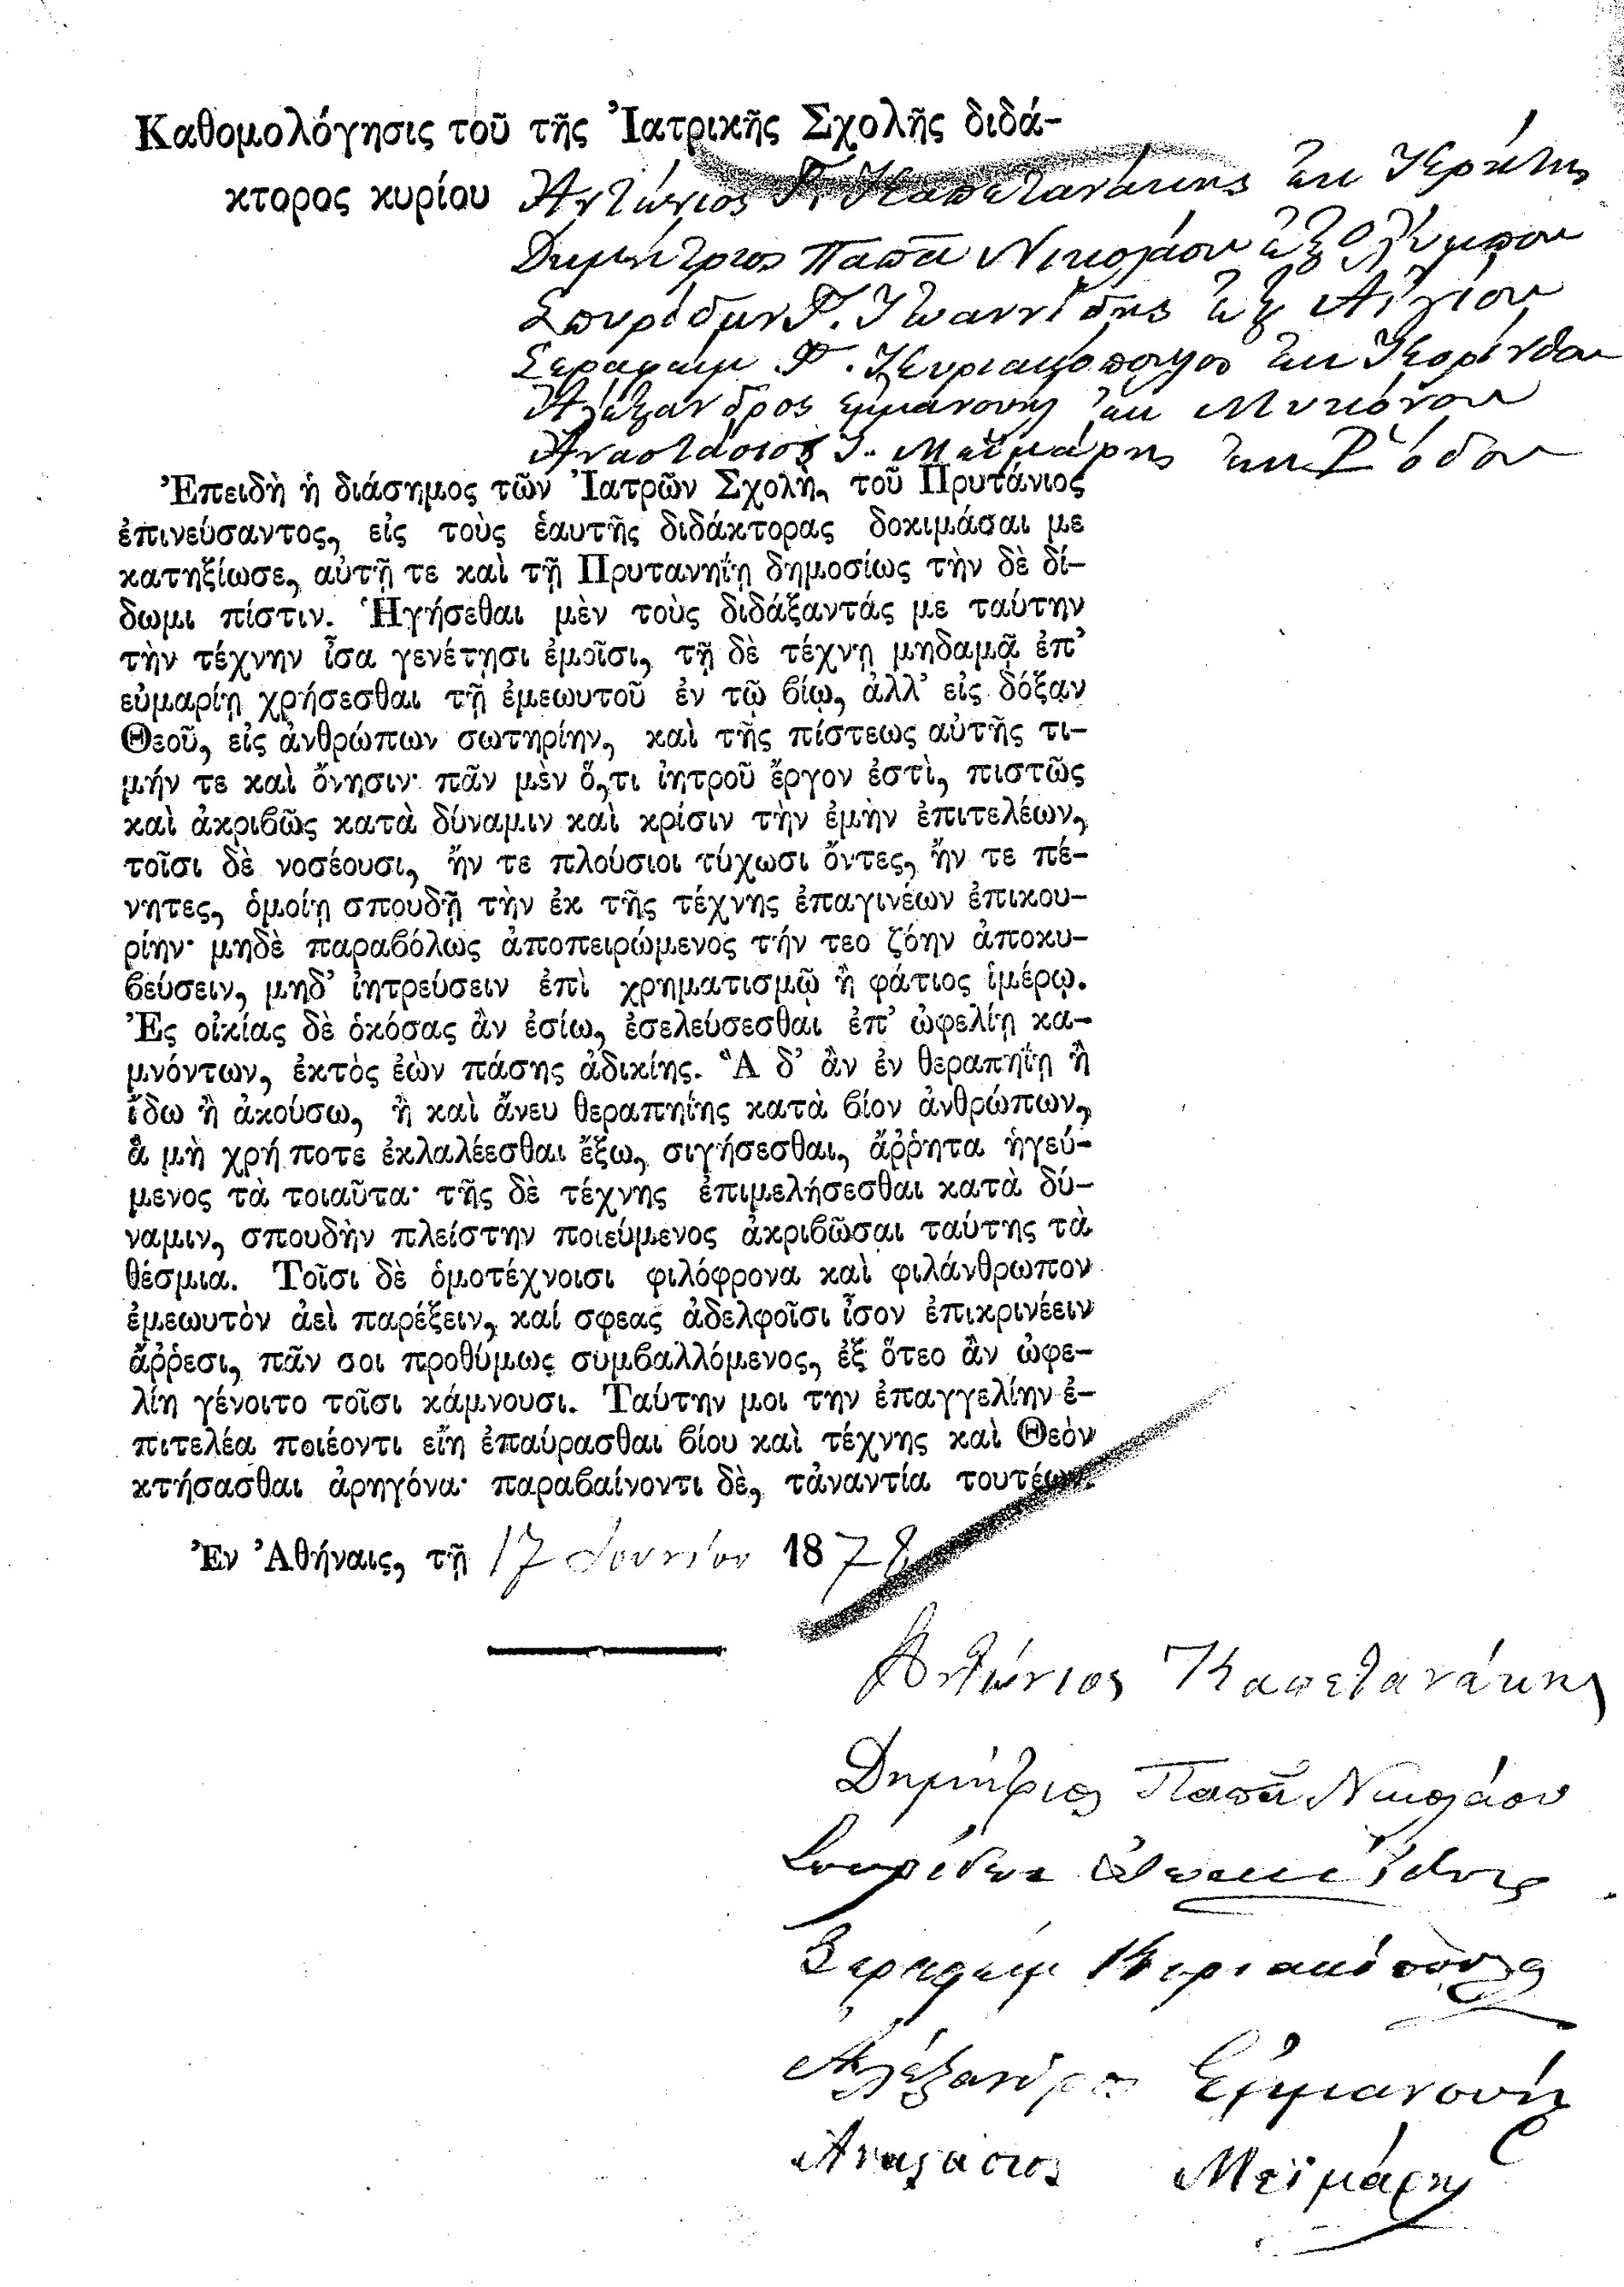 Καθομολόγησις τοῦ τῆς Ἰατρικῆς Σχολῆς διδά-
κτορος κυρίου Ἀντώνιος Γ. Καπετανάκης ἐκ Κρήτης
Δημήτριος Παπᾶ Νικολάου ἐξ Ὀλύμπου
Σπυρίδων Γ. Ἰωαννίδης ἐξ Αἰγίου
Σεραφείμ Κυριακόπουλος ἐκ Κορίνθου
Ἀλέξανδρος Ἐμμανουήλ ἐκ Μυκόνου
Ἀναστάσιος Ι. Μαϊμάρης ἐκ Ρόδου
Ἐπειδὴ ἡ διάσημος τῶν Ἰατρῶν Σχολὴ, τοῦ Πρυτάνιος
ἐπινεύσαντος, εἰς τοὺς ἑαυτῆς διδάκτορας δοκιμάσαι με
κατηξίωσε, αὐτῇ τε καὶ τῇ Πρυτανηΐῃ δημοσίως τὴν δὲ δί-
δωμι πίστιν. Ἡγήσεθαι μὲν τοὺς διδάξαντάς με ταύτην
τὴν τέχνην ἶσα γενέτῃσι ἐμοῖσι, τῇ δὲ τέχνῃ μηδαμᾷ ἐπ’
εὐμαρίῃ χρήσεσθαι τῇ ἐμεωυτοῦ ἐν τῷ βίῳ, ἀλλ’ εἰς δόξαν
Θεοῦ, εἰς ἀνθρώπων σωτηρίην, καὶ τῆς πίστεως αὐτῆς τι-
μήν τε καὶ ὄνησιν· πᾶν μὲν ὅ,τι ἰητροῦ ἔργον ἐστὶ, πιστῶς
καὶ ἀκριβῶς κατὰ δύναμιν καὶ κρίσιν τὴν ἐμὴν ἐπιτελέων,
τοῖσι δὲ νοσέουσι, ἤν τε πλούσιοι τύχωσι ὄντες, ἤν τε πέ-
νητες, ὁμοίῃ σπουδῇ τὴν ἐκ τῆς τέχνης ἐπαγινέων ἐπικου-
ρίην· μηδὲ παραβόλως ἀποπειρώμενος τήν τεο ζόην ἀποκυ-
βεύσειν, μηδ’ ἰητρεύσειν ἐπὶ χρηματισμῷ ἢ φάτιος ἱμέρῳ.
Ἐς οἰκίας δὲ ὁκόσας ἂν ἐσίω, ἐσελεύσεσθαι ἐπ’ ὠφελίῃ κα-
μνόντων, ἐκτὸς ἐὼν πάσης ἀδικίης. Ἃ δ’ ἂν ἐν θεραπηΐῃ ἢ
ἴδω ἢ ἀκούσω, ἢ καὶ ἄνευ θεραπηΐης κατὰ βίον ἀνθρώπων,
ἃ μὴ χρή ποτε ἐκλαλέεσθαι ἔξω, σιγήσεσθαι, ἄῤῥητα ἡγεύ-
μενος τὰ τοιαῦτα· τῆς δὲ τέχνης ἐπιμελήσεσθαι κατὰ δύ-
ναμιν, σπουδὴν πλείστην ποιεύμενος ἀκριβῶσαι ταύτης τὰ
θέσμια. Τοῖσι δὲ ὁμοτέχνοισι φιλόφρονα καὶ φιλάνθρωπον
ἐμεωυτὸν ἀεὶ παρέξειν, καί σφεας ἀδελφοῖσι ἶσον ἐπικρινέειν
ἄῤῥεσι, πᾶν σοι προθύμως συμβαλλόμενος, ἐξ ὅτεο ἂν ὠφε-
λίη γένοιτο τοῖσι κάμνουσι. Ταύτην μοι την ἐπαγγελίην ἐ-
πιτελέα ποιέοντι εἴη ἐπαύρασθαι βίου καὶ τέχνης καὶ Θεὸν
κτήσασθαι ἀρηγόνα· παραβαίνοντι δὲ, τἀναντία τουτέων.
Ἐν Ἀθήναις, τῇ 17 Ἰουνίου 1878
Ἀντώνιος Καπετανάκης
Δημήτριος Παπᾶ Νικολάου
Σπυρίδων Ἰωαννίδης
Σεραφείμ Κυριακόπουλος
Ἀλέξανδρος Ἐμμανουήλ
Ἀναστάσιος Μαϊμάρης